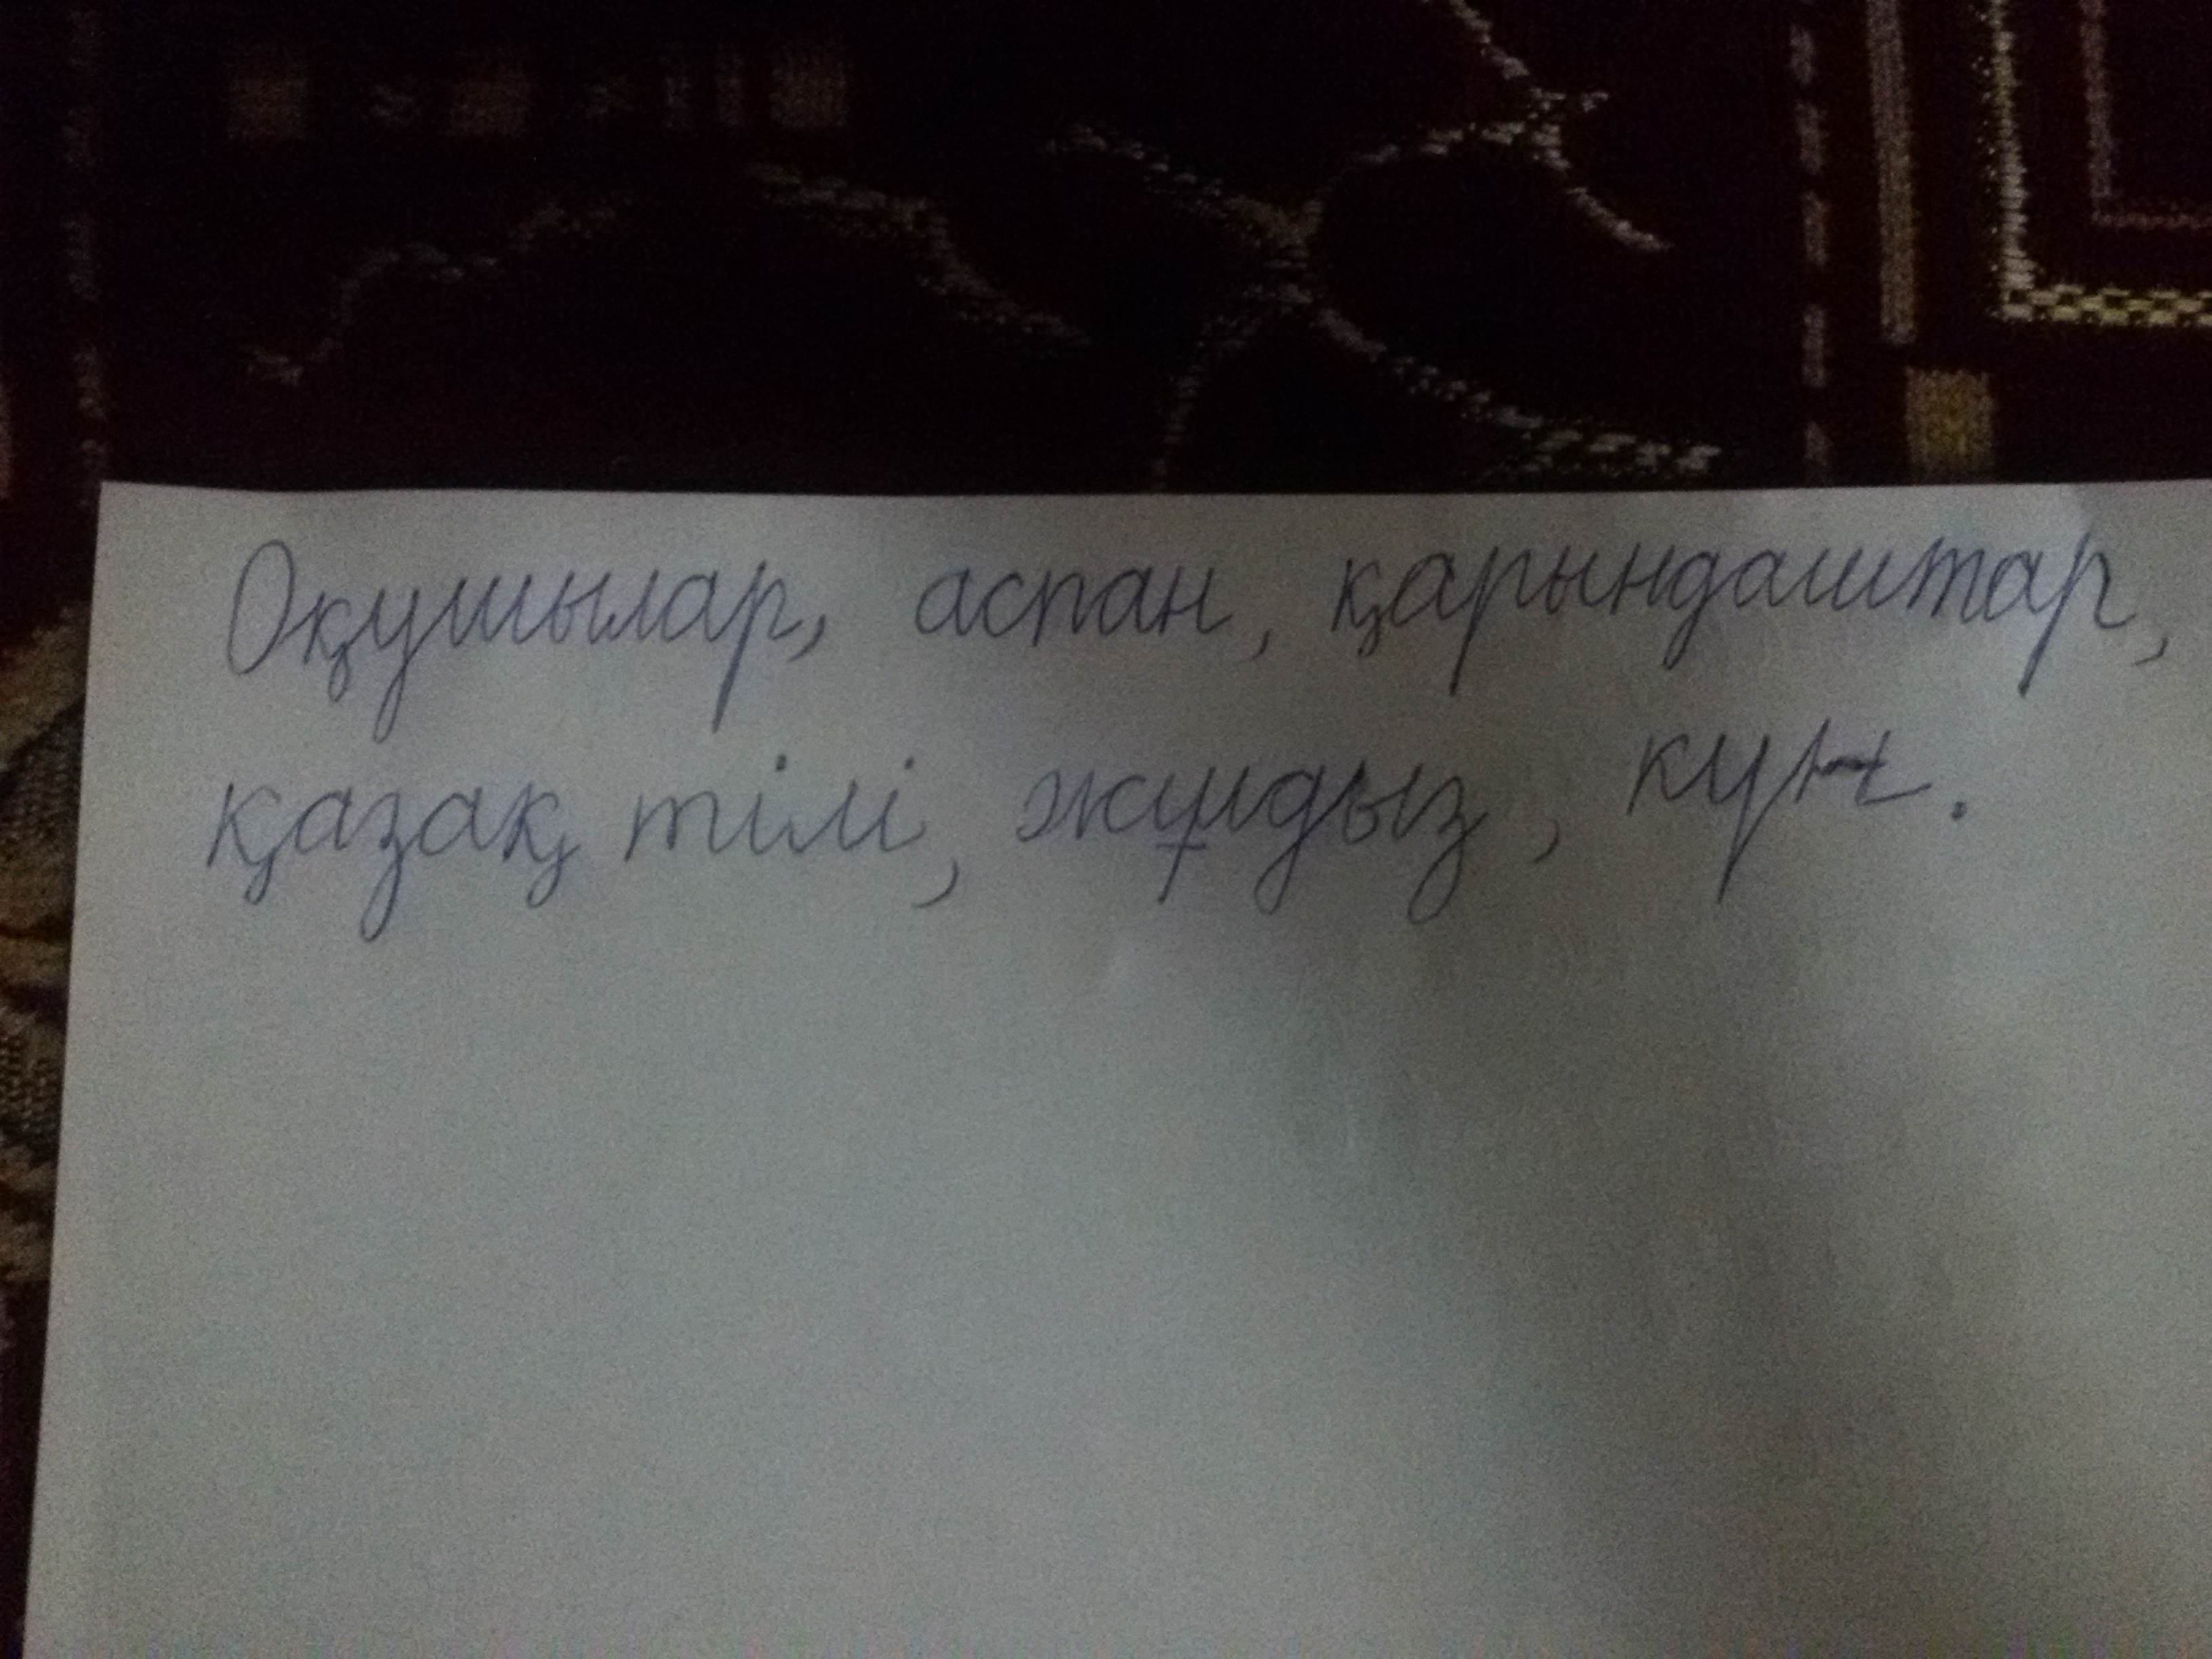 Оқушылар, аспан, қарындаштар,
қазақ тілі, жұлдыз, күн.